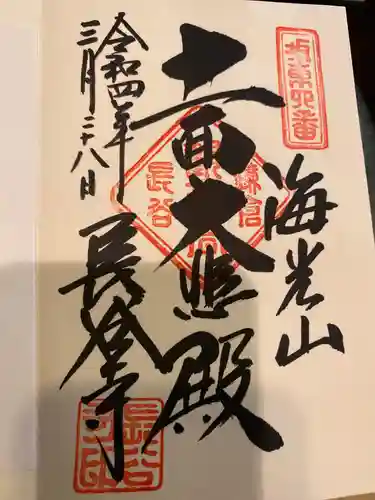 坂東四番
海光山
十一面大悲殿
鎌倉
長谷
令和四年
三月二十八日
長谷寺